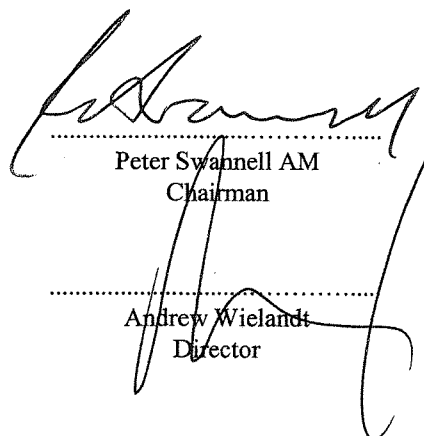 Peter Swannell AM
Chairman
Andrew Wielandt
Director